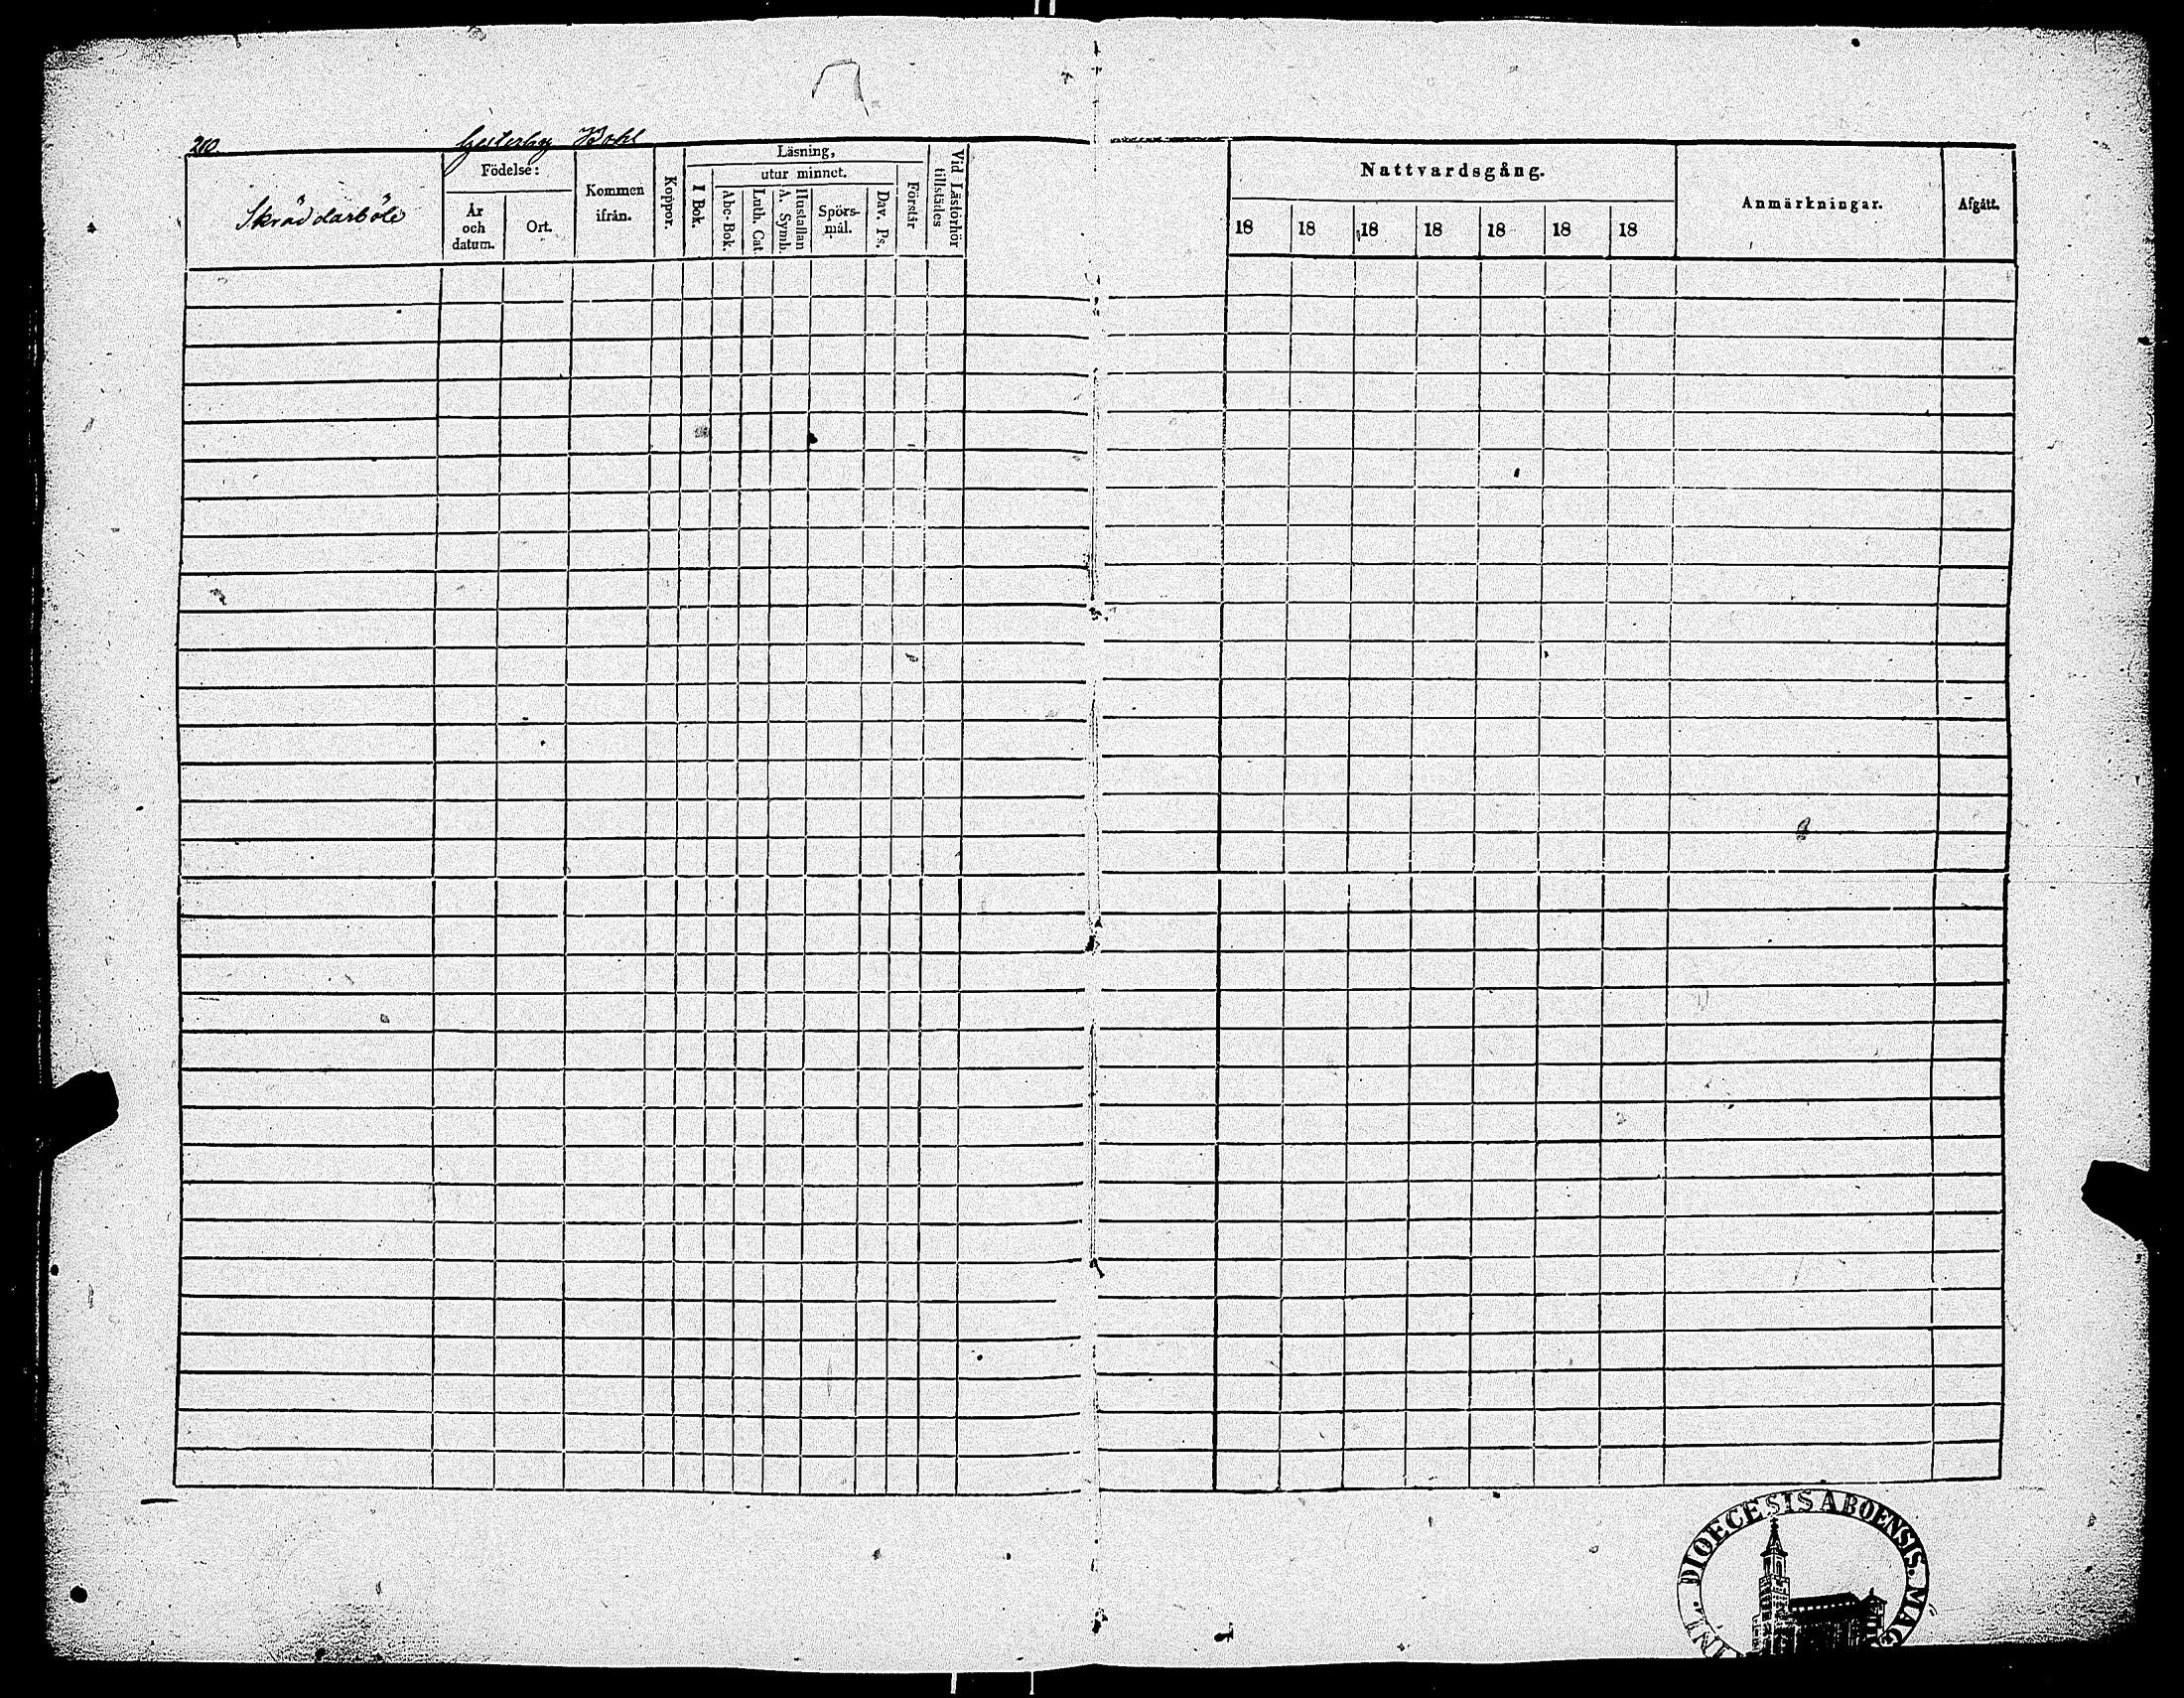 210. Gesterby Bohl
Skräddarböle
Födelse:
År och datum.
Ort.
Kommen ifrån.
Koppor.
Läsning,
I Bok.
utur minnet.
Abc-Bok.
Luth. Cat.
Hustaflan A. Symb.
Spörs-mål.
Dav. Ps.
Förstår
Vid Läsförhör tillstädes
Nattvardsgång.
18 18 18 18 18 18 18
Anmärkningar.
Afgått.
DIOECESIS ABOENSIS. MAG